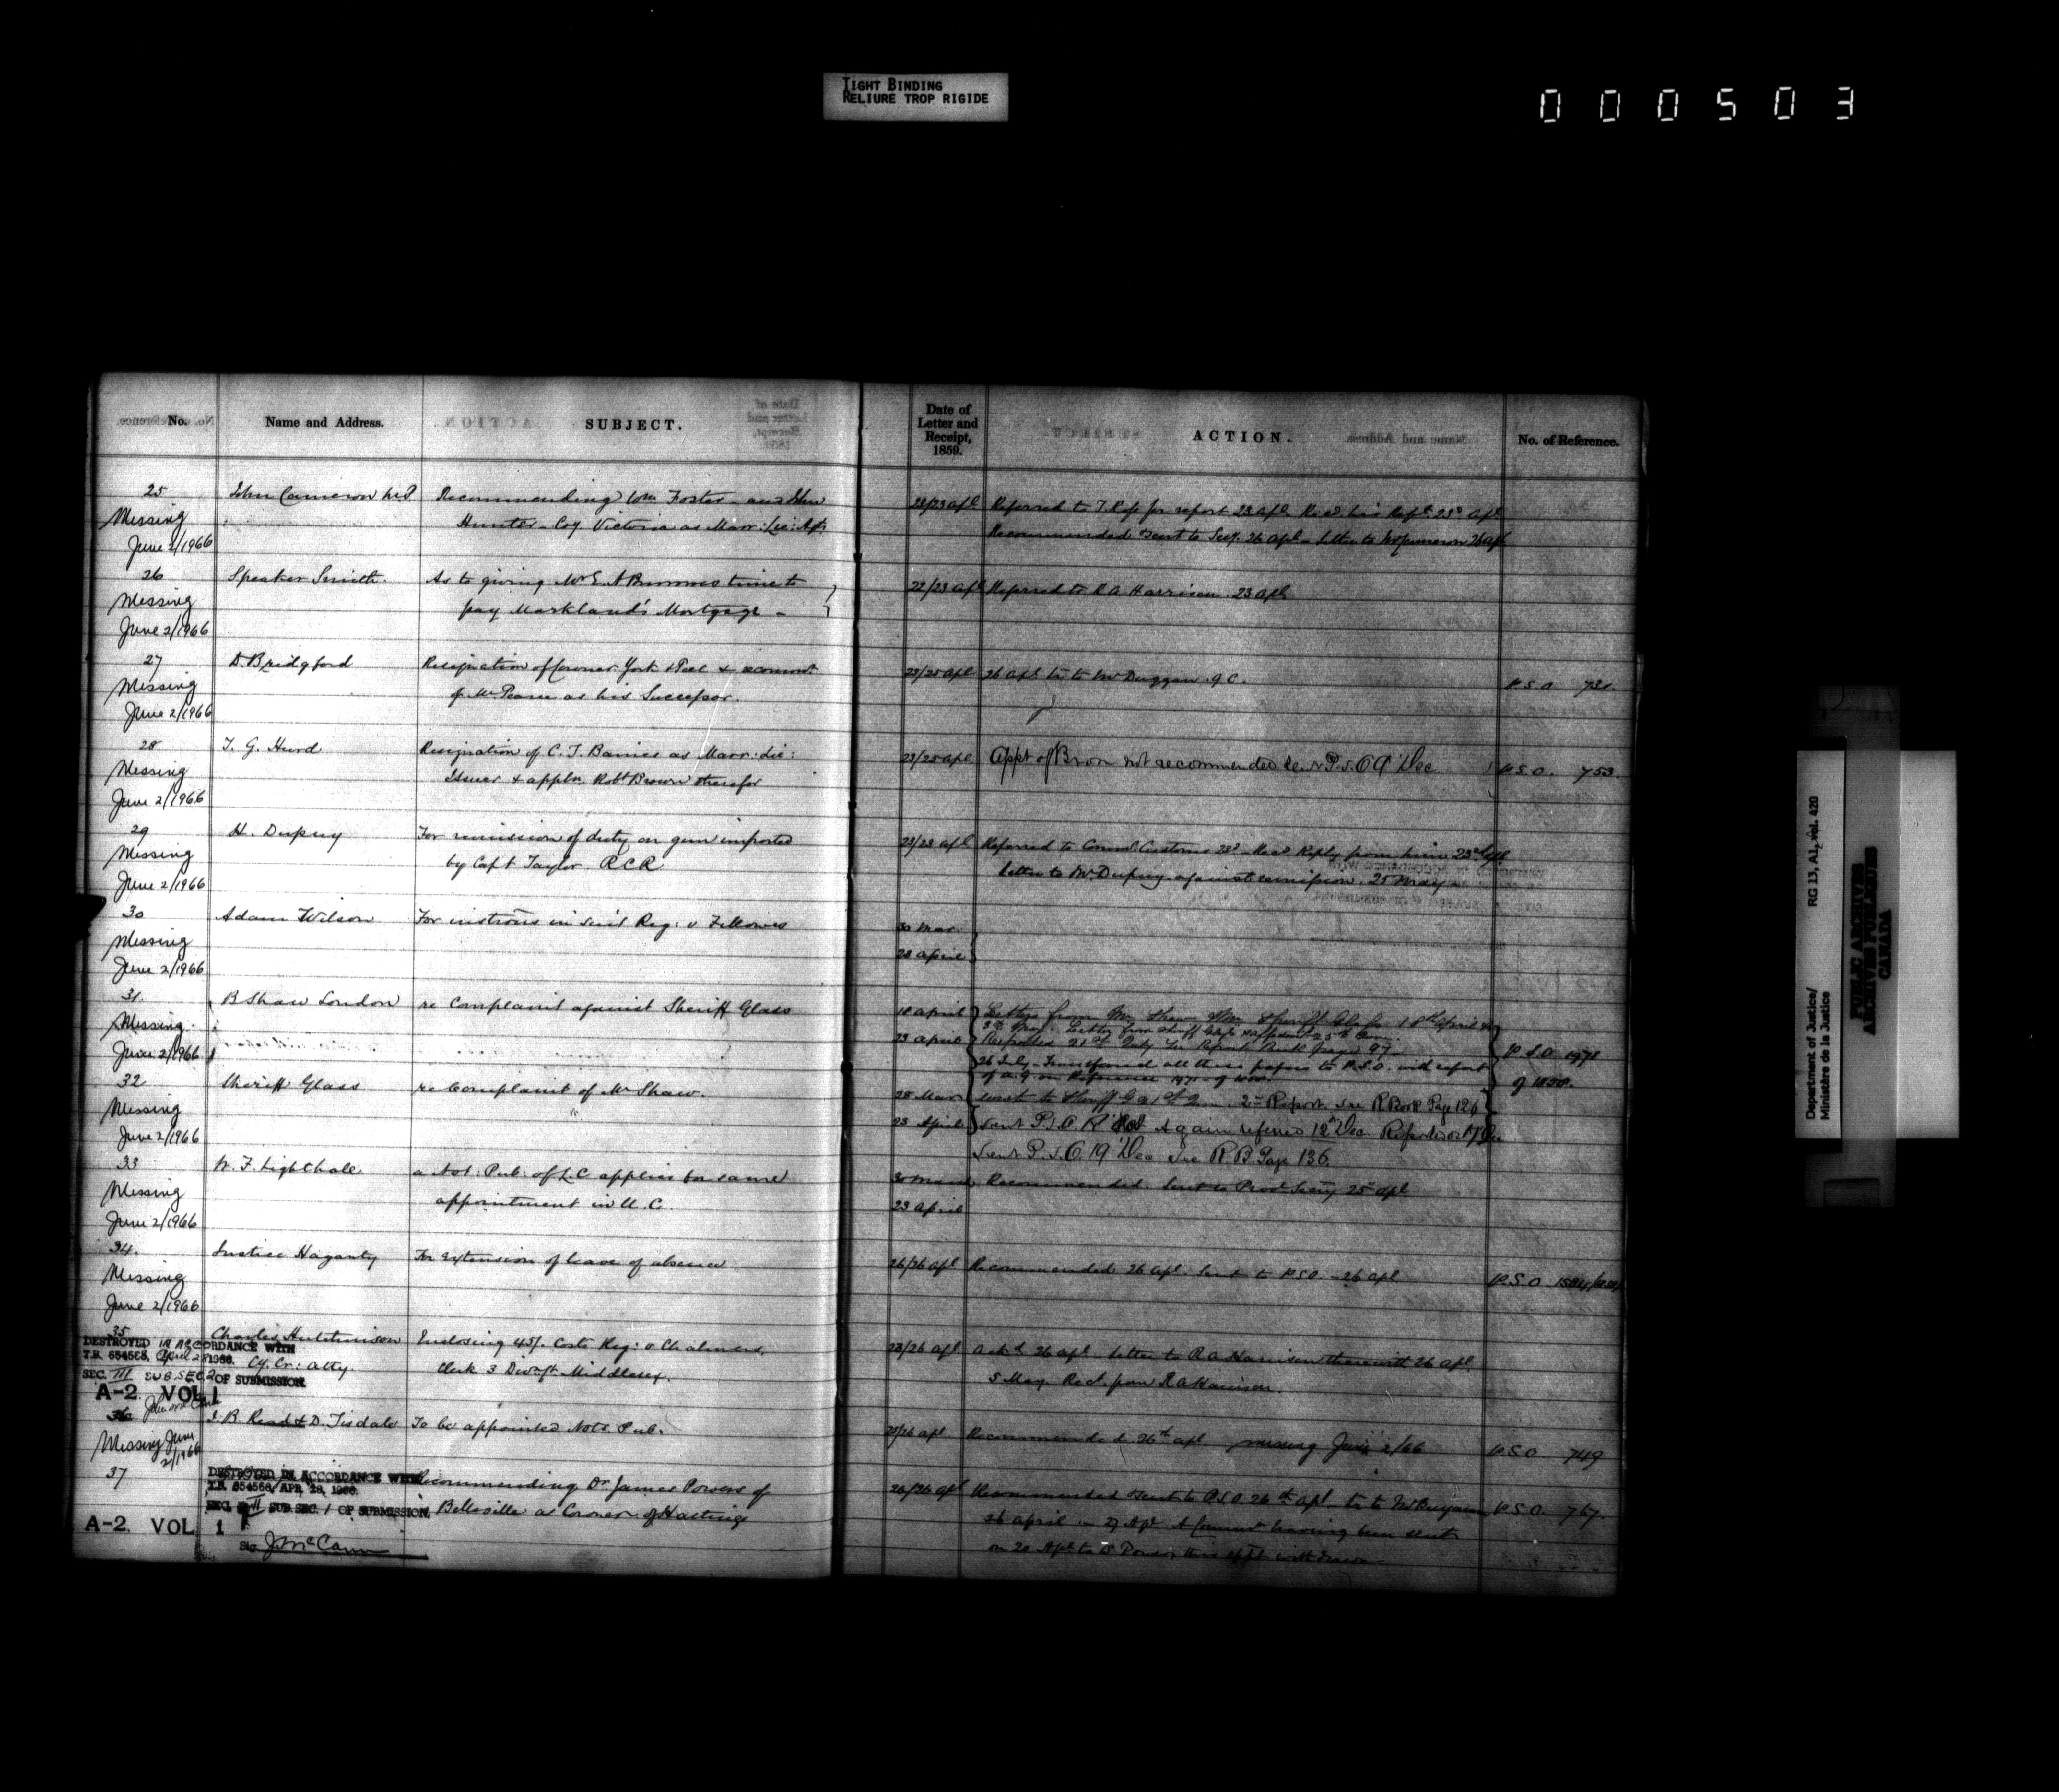 TIGHT BINDING
RELIURE TROP RIGIDE
000503
No. Name and Address. SUBJECT.
Date of Letter and Receipt, 1859. ACTION. No. of Reference.
25 John Cameron Recommending Wm Foster and John
Missing Hunter Coy Victoria as Marr: Lic: Agts
June 2/1966
23/23 apl Referred to for report 23 apl. Recd his Rept 23d apl
Recommended & sent to Secy. 26 apl - letter to Mr Cameron 26 apl
26 Speaker Smith. As to giving Mr E. A time to
Missing pay Markland's Mortgage -
June 2/1966
22/23 apl Referred to R A Harrison 23 apl
27 D. Bridgford Resignation of Coroner York & Peel &
Missing of Mr Pearce as his Successor.
June 2/1966
23/25 apl 26 apl to Mr Duggan Q C. P.S.O
28 T. G. Hurd Resignation of C. T. as Marr: Lic:
Missing Issuer & appln Robt Brown therefor
June 2/1966
23/25 apl Appt of Brown not recommended P.S.O 9 Dec P.S.O. 753
29 H. Dupuy For remission of duty on gun imported
Missing by Capt Taylor RCR
June 2/1966
23/23 apl Referred to Commr Customs 23d Recd Reply from him 23rd apl
letter to Mr Dupuy against remission 25 May
30 Adam Wilson For instrons in suit Reg: v Fellowes
Missing
June 2/1966
30 Mar.
23 April
31. B Shaw London re Complaint against Sheriff Glass
Missing
June 2/1966
18 April Letters from Mr Shaw & Sheriff Glass 18th April &
Letter from Sheriff Glass
23 April Reported 21st July See Report Book page 97
26 July Transferred all these papers to P.S.O. with report
of A.G. on Reference 1971 of 1858
P.S.O 1971
of 1858.
32 Sheriff Glass re Complaint of Mr Shaw.
Missing
June 2/1966
28 Mar 2nd Report. See R Book Page 126
23 April Sent P.S.O. Again referred 12th Dec Reported 17 Dec
Sent P.S.O. 19 Dec See R B Page 136
33 W. F. Lighthall a Not: Pub: of L.C applies for same
Missing appointment in U.C.
June 2/1966
30 March Recommended. Sent to Provl Secy 25 apl
23 April
34. Justice Hagarty For extension of leave of absence
Missing
June 2/1966
26/26 apl Recommended 26 apl. Sent to P.S.O. - 26 apl P.S.O
35 Charles Hutchinson Enclosing 45/. Costs Reg: v Chalmers,
Cy. Cr: Atty. Clerk 3 Div. Ct. Middlesex.
DESTROYED IN ACCORDANCE WITH
T.B. 654568, April 28 1966.
SEC. III SUB SEC 2 OF SUBMISSION
A-2. VOL 1
23/26 apl Ackd 26 apl. Letter to R A Harrison therewith 26 apl.
5 May Rect. from R A Harrison.
36 J. B. Read & D. Tisdale To be appointed Not. Pub.
Missing June
2/1966
25/26 apl Recommended 26th apl missing June 2/66 P.S.O 749
37 Recommending Dr James Powers of
Belleville as Coroner of Hastings
DESTROYED IN ACCORDANCE WITH
T.B. 654568, APR. 28, 1966.
SEC. III SUB SEC. 1 OF SUBMISSION.
A-2. VOL 1
Sig. J McCann
26/26 apl Recommended & sent to P.S.O. 26th apl P.S.O. 767.
26 april - 27 Apl. A having been sent
on 20 Apl to Dr Powers this appt withdrawn
Department of Justice/
Ministère de la Justice
RG 13, A1, vol. 420
PUBLIC ARCHIVES
ARCHIVES PUBLIQUES
CANADA